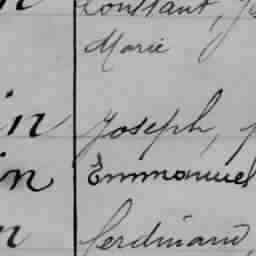 Constant,
Marie
in Joseph,
in Emmanuel
n Ferdinand,